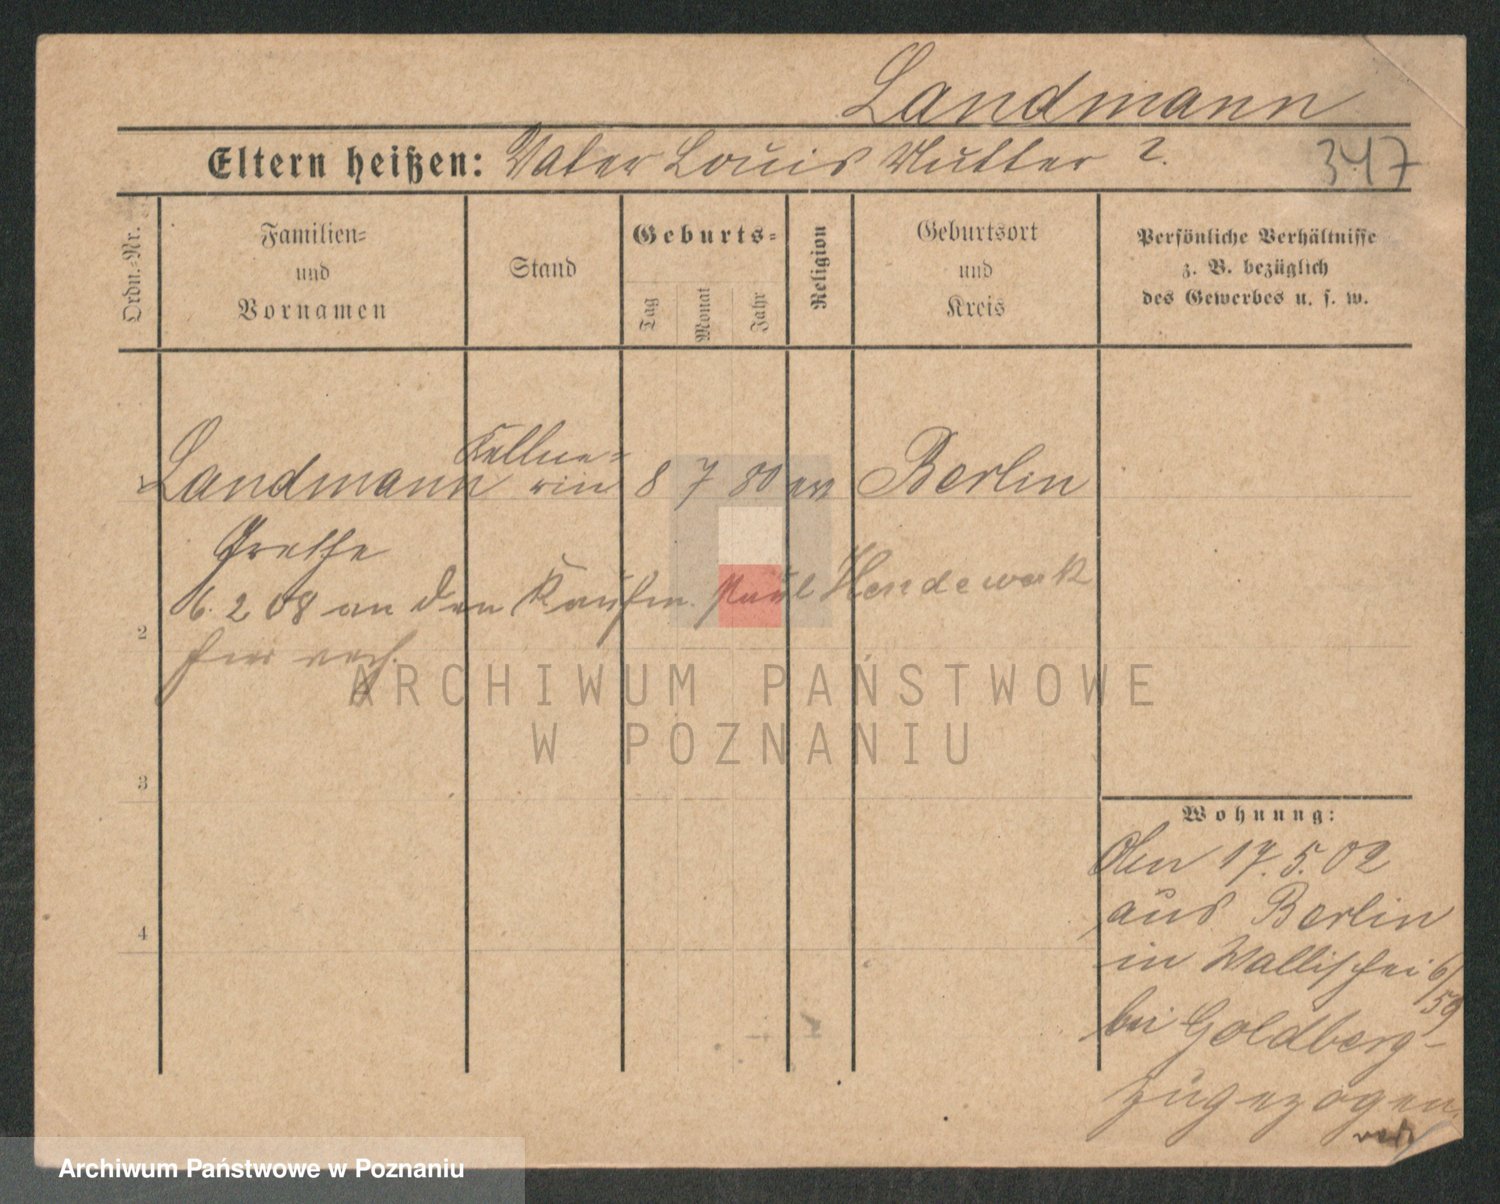 Landmann
Eltern heißen: Vater Louis Mutter ?.
347
Ordn.-Nr.
Familien-
und
Vornamen
Stand
Geburts-
Tag
Monat
Jahr
Religion
Geburtsort
und
Kreis
Persönliche Verhältnisse
z. B. bezüglich
des Gewerbes u. s. w.
1 Landmann Kellne-
rin 8 7 80 ev Berlin
Grethe
6. 2 08 an den Kaufm. Paul Hendewerk
2
hier verh.
ARCHIWUM PAŃSTWOWE
W POZNANIU
3
4
Wohnung:
Den 17. 5. 02
aus Berlin
in Wallischei 6/
59
bei Goldberg-
zugezogen.
Archiwum Państwowe w Poznaniu